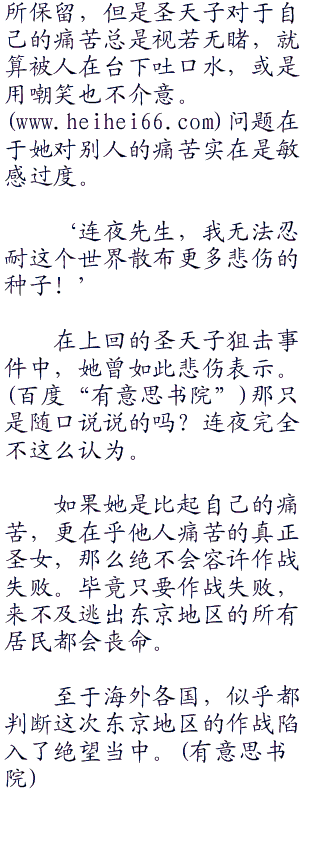 所保留，但是圣天子对于自
己的痛苦总是视若无睹，就
算被人在台下吐口水，或是
用嘲笑也不介意。
(www.heihei66.com)问题在
于她对别人的痛苦实在是敏
感过度。
‘连夜先生，我无法忍
耐这个世界散布更多悲伤的
种子！’
在上回的圣天子狙击事
件中，她曾如此悲伤表示。
(百度“有意思书院”)那只
是随口说说的吗？连夜完全
不这么认为。
如果她是比起自己的痛
苦，更在乎他人痛苦的真正
圣女，那么绝不会容许作战
失败。毕竟只要作战失败，
来不及逃出东京地区的所有
居民都会丧命。
至于海外各国，似乎都
判断这次东京地区的作战陷
入了绝望当中。(有意思书
院)